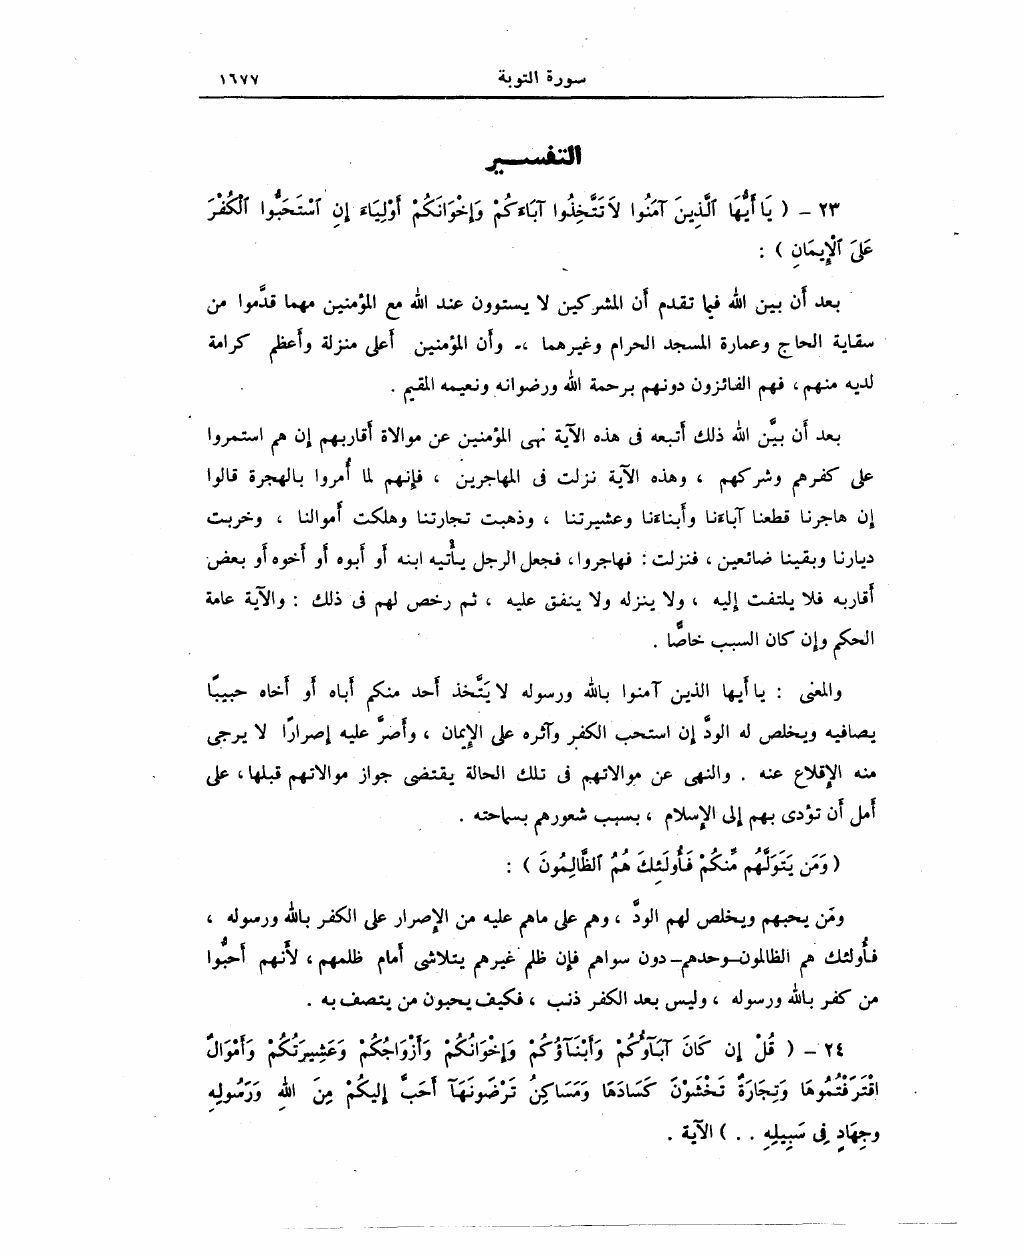 سورة التوبة ١٦٧٧
التفسـير
٢٣ - ( يَا أَيُّهَا ٱلَّذِينَ آمَنُوا لاَ تَتَّخِذُوا آبَاءَكُمْ وَإِخْوَانَكُمْ أَوْلِيَاءَ إِنِ ٱسْتَحَبُّوا ٱلْكُفْرَ
عَلَى ٱلْإِيمَانِ ) :
بعد أن بين الله فيما تقدم أن المشركين لا يستوون عند الله مع المؤمنين مهما قدَّموا من
سقاية الحاج وعمارة المسجد الحرام وغيرهما ،- وأن المؤمنين أعلى منزلة وأعظم كرامة
لديه منهم ، فهم الفائزون دونهم برحمة الله ورضوانه ونعيمه المقيم .
بعد أن بيَّن الله ذلك أتبعه فى هذه الآية نهى المؤمنين عن موالاة أقاربهم إن هم استمروا
على كفرهم وشركهم ، وهذه الآية نزلت فى المهاجرين ، فإنهم لما أُمروا بالهجرة قالوا
إن هاجرنا قطعنا آباءَنا وأبناءَنا وعشيرتنا ، وذهبت تجارتنا وهلكت أموالنا ، وخربت
ديارنا وبقينا ضائعين ، فنزلت : فهاجروا ، فجعل الرجل يأْتيه ابنه أو أبوه أو أخوه أو بعض
أقاربه فلا يلتفت إليه ، ولا ينزله ولا ينفق عليه ، ثم رخص لهم فى ذلك : والآية عامة
الحكم وإن كان السبب خاصًّا .
والمعنى : يا أيها الذين آمنوا بالله ورسوله لا يَتَّخذ أحد منكم أباه أو أخاه حبيبًا
يصافيه ويخلص له الودَّ إن استحب الكفر وآثره على الإِيمان ، وأصرَّ عليه إصرارًا لا يرجى
منه الإقلاع عنه . والنهى عن موالاتهم فى تلك الحالة يقتضى جواز موالاتهم قبلها ، على
أمل أن تؤدى بهم إلى الإسلام ، بسبب شعورهم بسماحته .
( وَمَن يَتَوَلَّهُم مِّنكُمْ فَأُولَئِكَ هُمُ ٱلظَّالِمُونَ ) :
ومَن يحبهم ويخلص لهم الودَّ ، وهم على ماهم عليه من الإصرار على الكفر بالله ورسوله ،
فأُولئك هم الظالمون-وحدهم-دون سواهم فإن ظلم غيرهم يتلاشى أمام ظلمهم ، لأَنهم أحبُّوا
من كفر بالله ورسوله ، وليس بعد الكفر ذنب ، فكيف يحبون من يتصف به .
٢٤ - ( قُلْ إِن كَانَ آبَاؤُكُمْ وَأَبْنَآؤُكُمْ وَإِخْوَانُكُمْ وَأَزْوَاجُكُمْ وَعَشِيرَتُكُمْ وَأَمْوَالٌ
اقْتَرَفْتُمُوهَا وَتِجَارَةٌ تَخْشَوْنَ كَسَادَهَا وَمَسَاكِنُ تَرْضَونَهَآ أَحَبَّ إِلَيكُمْ مِنَ اللهِ وَرَسُولِهِ
وجِهَادٍ فِى سَبِيلِهِ . . ) الآية .